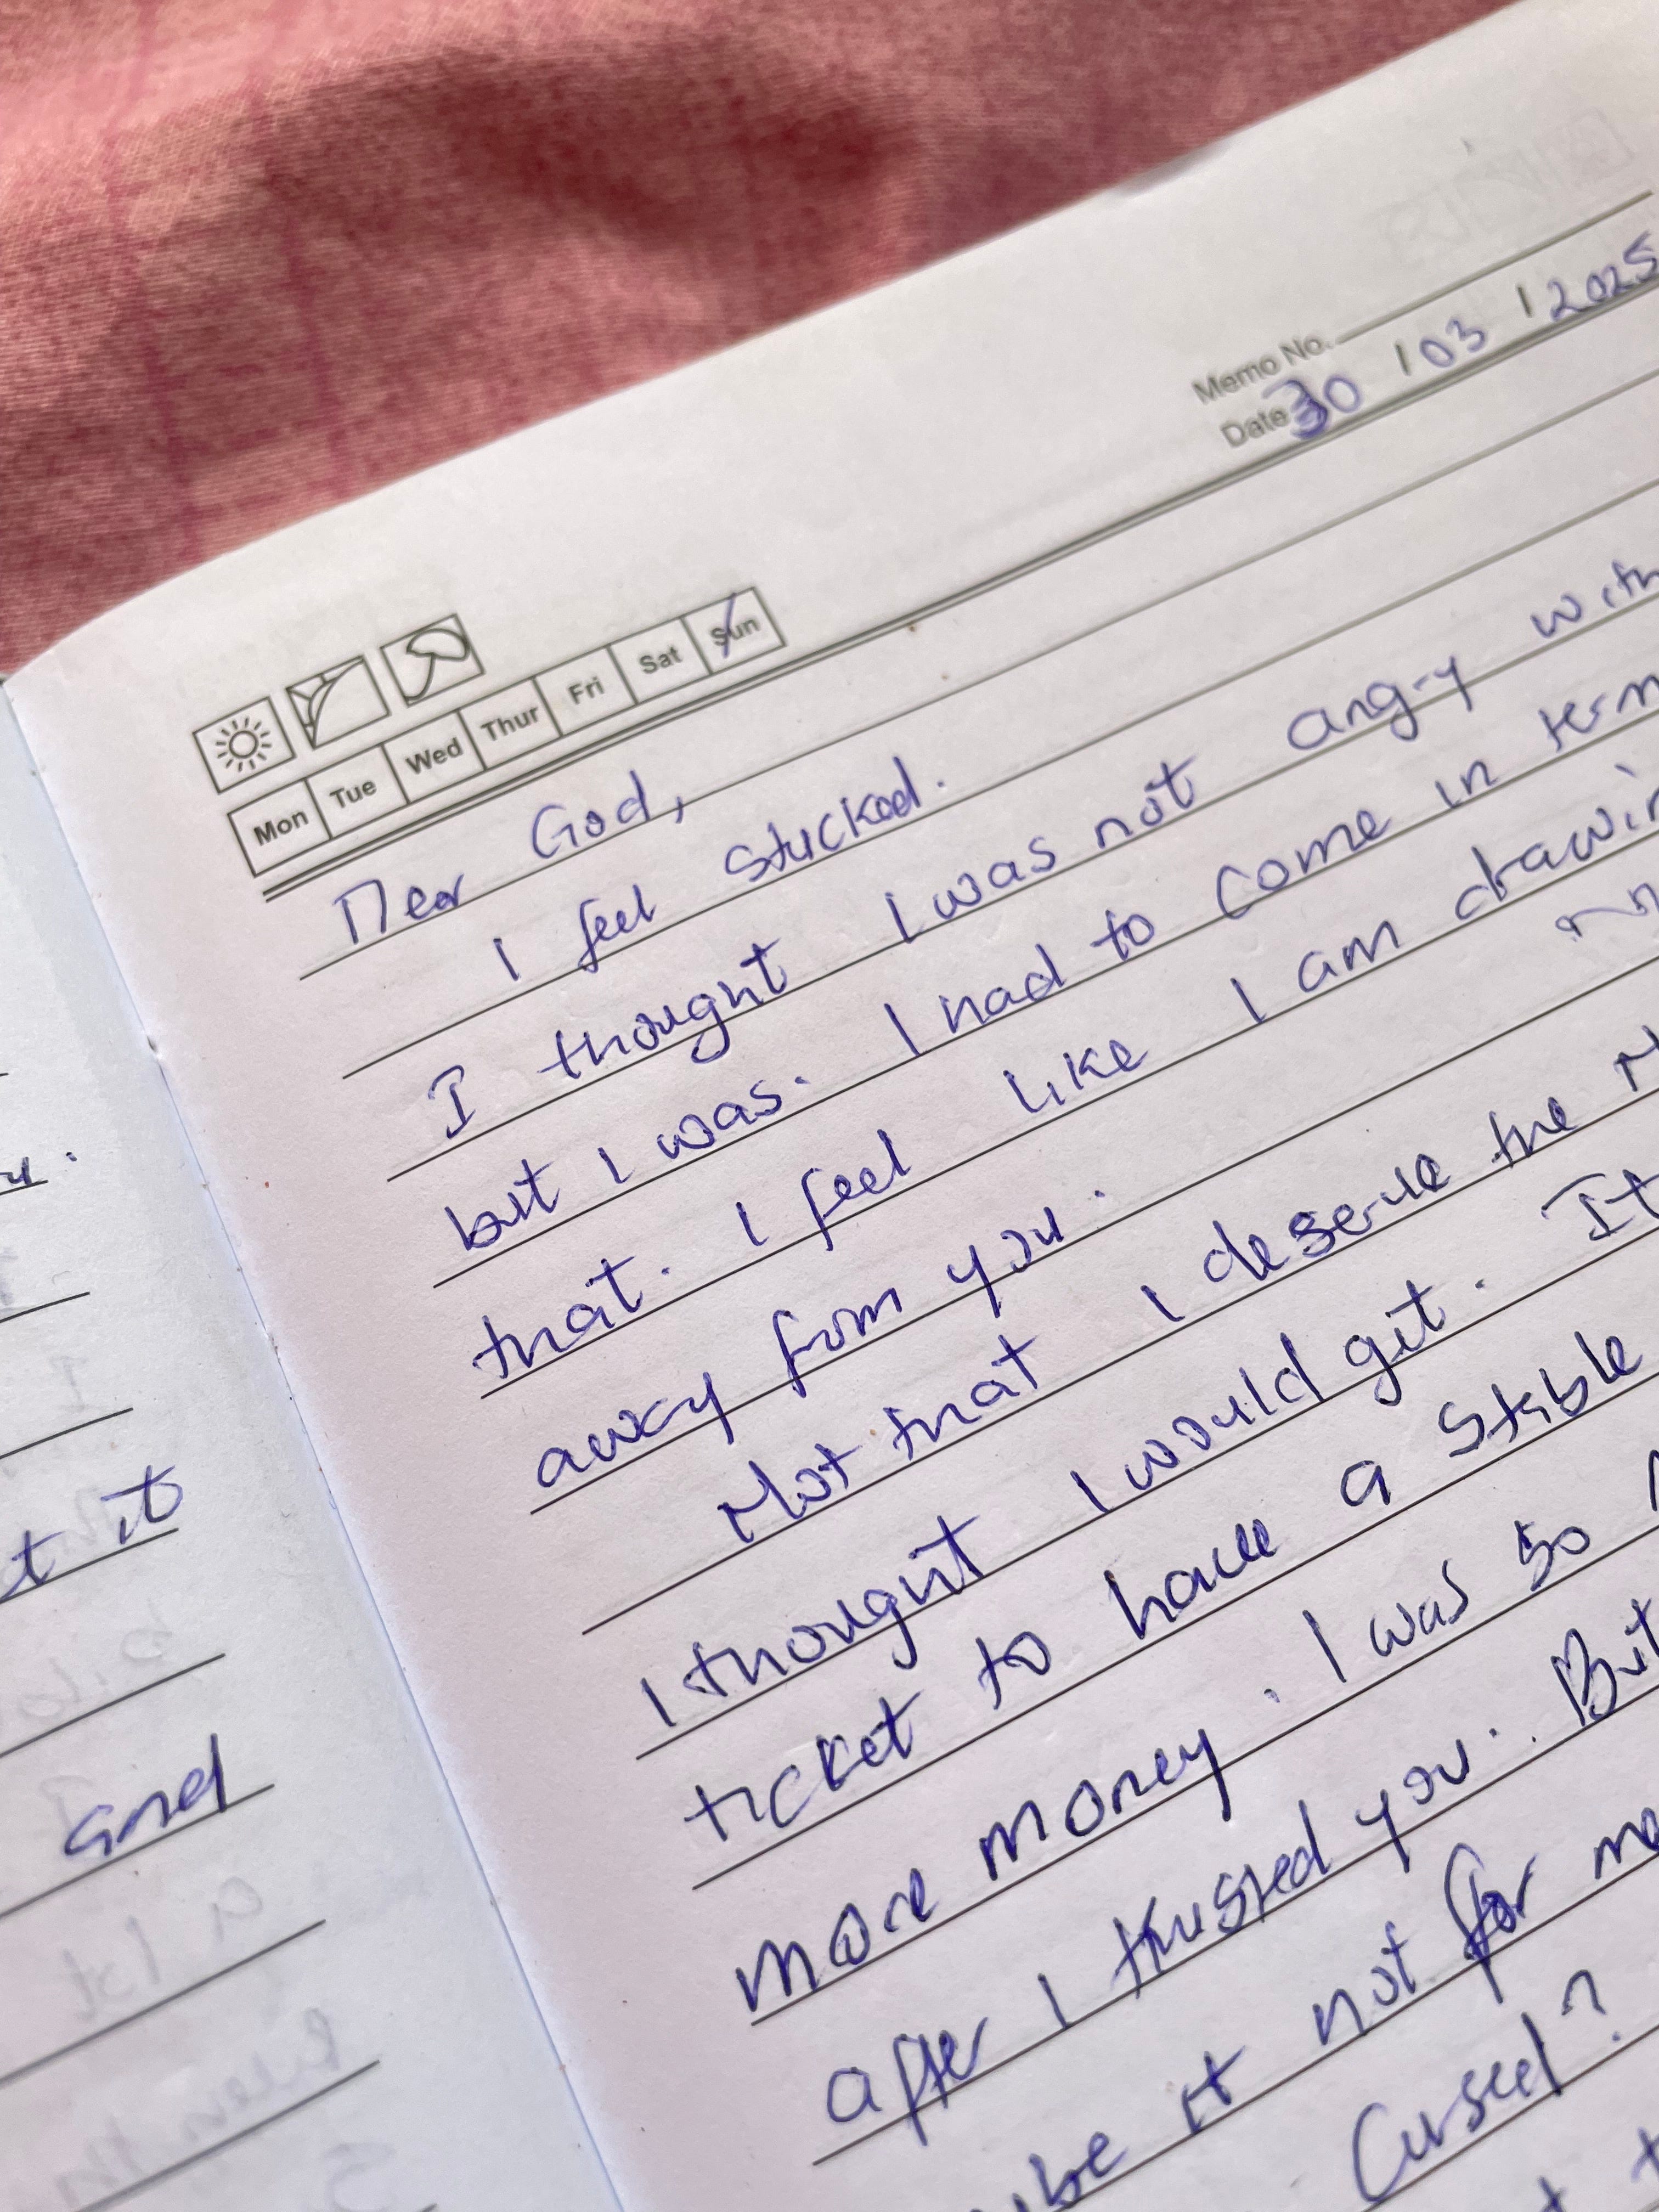 Memo No.
Date 30 / 03 / 2025
Mon Tue Wed Thur Fri Sat Sun
Dear God,
I feel stucked.
I thought I was not angry with
but I was. I had to come in term
that. I feel like I am drawin
away from you.
Not that I deserve the
I thought I would get. It
ticket to have a stable
more money. I was so
after I trusted you. But
be it not for me
Cursed?
t it
and